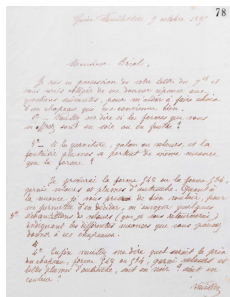 78
9 octobre 189
Monsieur Brial.
Je suis en possession de votre lettre du 7 et
suis obligée de me donner réponse aux
questions suivantes, pour m'aider à faire choix
d'un chapeau qui me convienne bien.
1° - Veuillez me dire si les formes que vous
m'offrez sont en soie ou en feutre ?
2° - Si la garniture, galon ou velours et la
fantaisie plumes se portent de même nuance
que la forme ?
Je prendrai la forme 542 ou la forme 584
garnie velours et plumes d'autruche. Quant à
la nuance, je vous de bien vouloir, pour
me permettre d'en, m'envoyer quelques
3° échantillons de velours (que je vous retournerai)
indiquant les différentes nuances que vous pouvez
donner à ce chapeau.
4°
Enfin veuillez me dire quel serait le prix
du chapeau, forme 542 ou 584, garni velours et
belles plumes d'autruche, soit en noir ? soit en
couleur ?